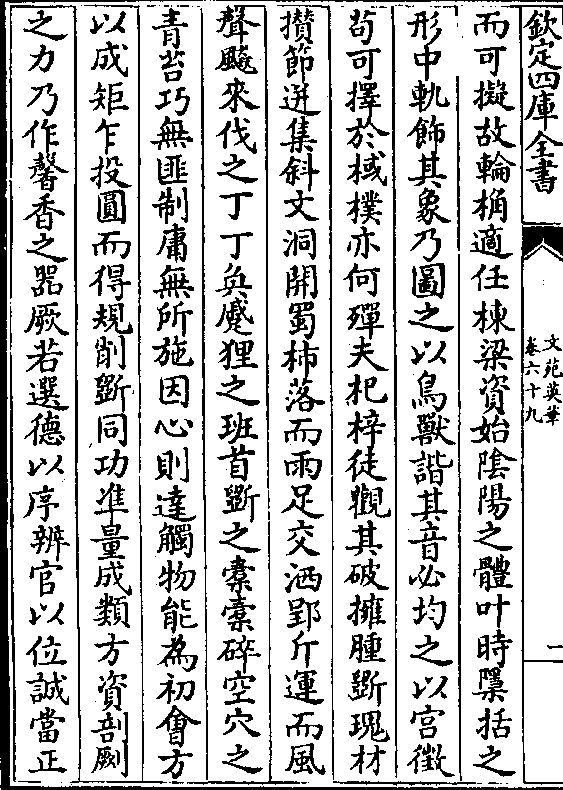 欽定四庫全書
文苑英華
卷六十九
二
而可擬故輪桷適任棟梁資始陰陽之體叶時檃括之
形中軌飾其象乃圖之以鳥獸諧其音必均之以宮徵
苟可擇於棫樸亦何殫夫杞梓徒觀其破擁腫斲瑰材
攅節迸集斜文洞開蜀柿落而雨足交洒郢斤運而風
聲飈來伐之丁丁奐蹙狸之班首斲之橐橐碎空穴之
青苔巧無匪制庸無所施因心則達觸物能為初會方
以成矩乍投圓而得規削斲同功準量成類方資剖劂
之力乃作馨香之器厥若選德以序辨官以位誠當正